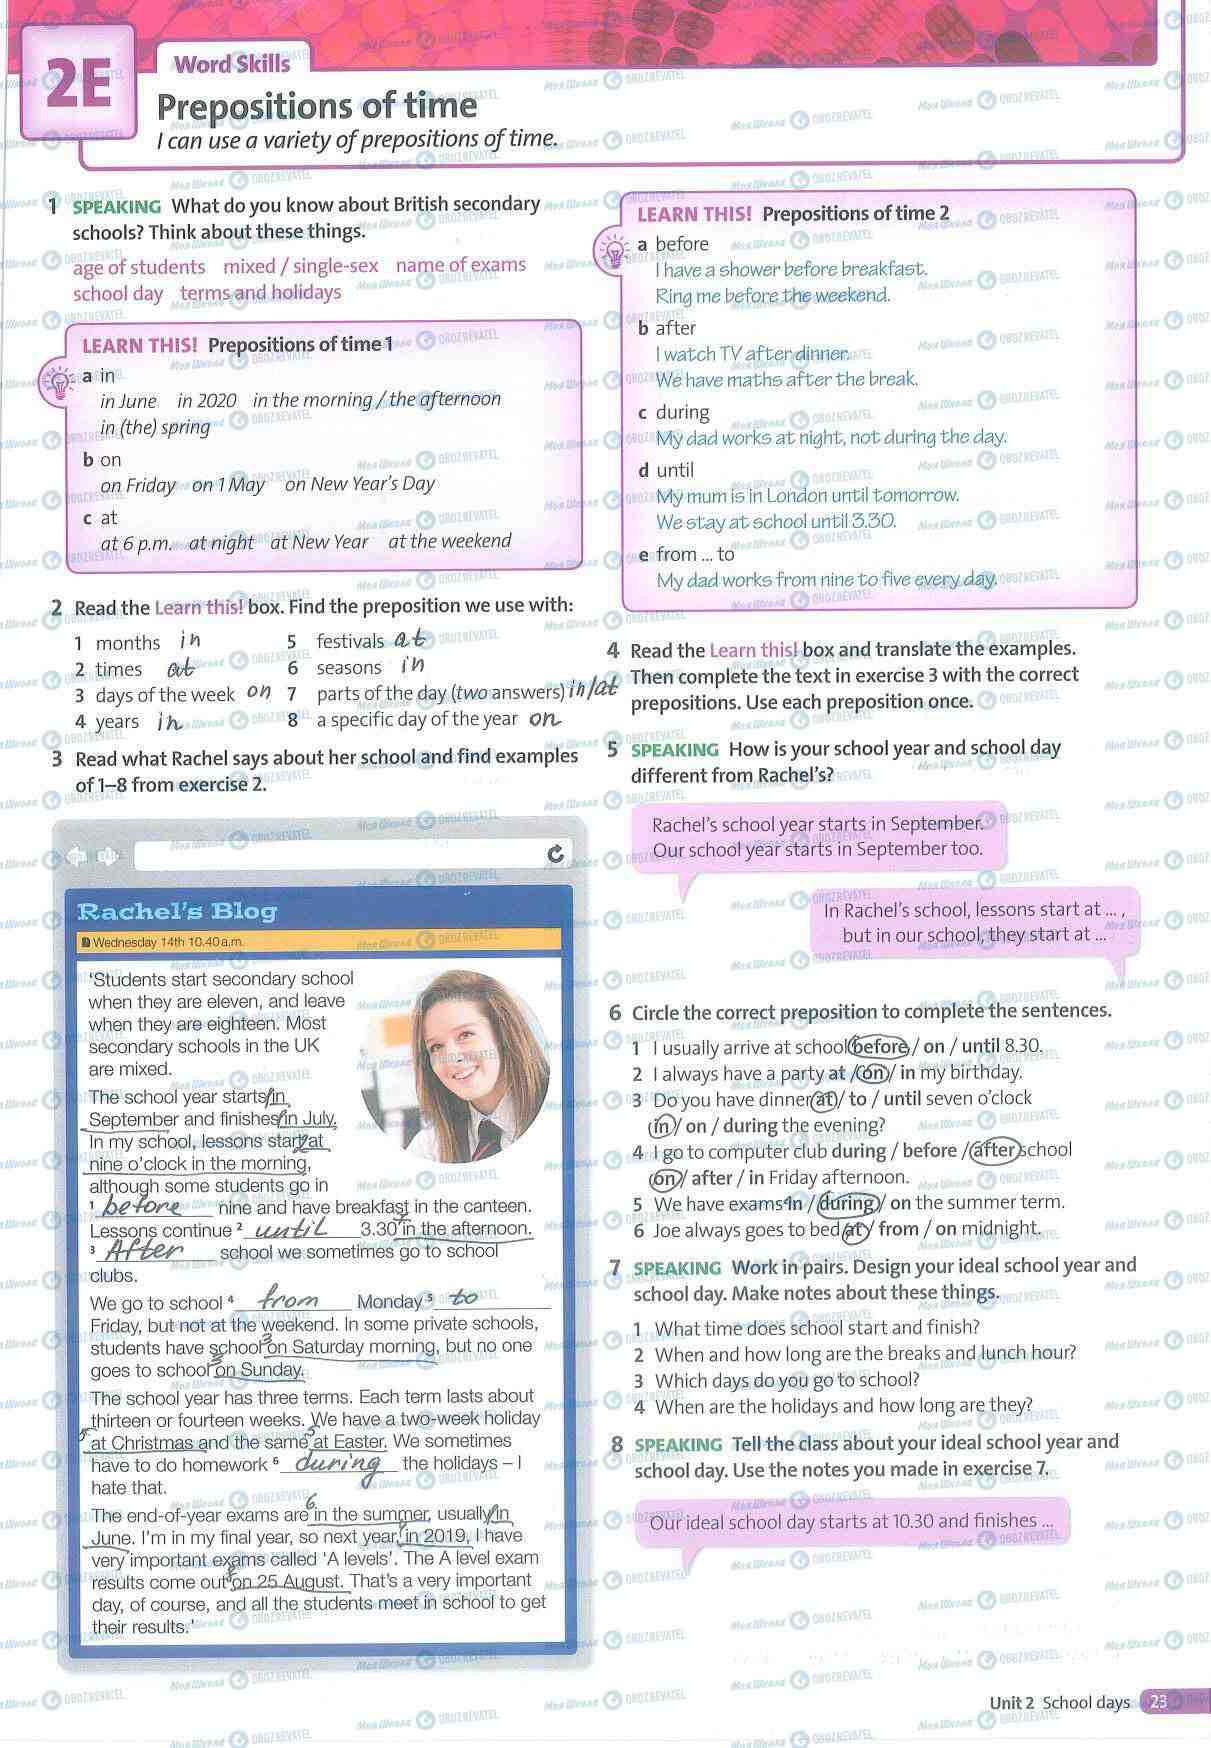 2E
Word Skills
Prepositions of time
I can use a variety of prepositions of time.
1 SPEAKING What do you know about British secondary
schools? Think about these things.
age of students mixed / single-sex name of exams
school day terms and holidays
LEARN THIS! Prepositions of time 1
a in
in June in 2020 in the morning / the afternoon
in (the) spring
b on
on Friday on 1 May on New Year's Day
c at
at 6 p.m. at night at New Year at the weekend
2 Read the Learn this! box. Find the preposition we use with:
1 months in
2 times at
3 days of the week on
4 years in
5 festivals at
6 seasons in
7 parts of the day (two answers) in/at
8 a specific day of the year on
3 Read what Rachel says about her school and find examples
of 1–8 from exercise 2.
Rachel's Blog
Wednesday 14th 10.40 a.m.
'Students start secondary school
when they are eleven, and leave
when they are eighteen. Most
secondary schools in the UK
are mixed.
The school year starts in
September and finishes in July.
In my school, lessons start at
nine o'clock in the morning,
although some students go in
1 before nine and have breakfast in the canteen.
Lessons continue 2 until 3.30 in the afternoon.
3 After school we sometimes go to school
clubs.
We go to school 4 from Monday 5 to
Friday, but not at the weekend. In some private schools,
students have school on Saturday morning, but no one
goes to school on Sunday.
The school year has three terms. Each term lasts about
thirteen or fourteen weeks. We have a two-week holiday
at Christmas and the same at Easter. We sometimes
have to do homework 6 during the holidays – I
hate that.
The end-of-year exams are in the summer, usually in
June. I'm in my final year, so next year, in 2019, I have
very important exams called 'A levels'. The A level exam
results come out on 25 August. That's a very important
day, of course, and all the students meet in school to get
their results.'
LEARN THIS! Prepositions of time 2
a before
I have a shower before breakfast.
Ring me before the weekend.
b after
I watch TV after dinner.
We have maths after the break.
c during
My dad works at night, not during the day.
d until
My mum is in London until tomorrow.
We stay at school until 3.30.
e from ... to
My dad works from nine to five every day.
4 Read the Learn this! box and translate the examples.
Then complete the text in exercise 3 with the correct
prepositions. Use each preposition once.
5 SPEAKING How is your school year and school day
different from Rachel's?
Rachel's school year starts in September.
Our school year starts in September too.
In Rachel's school, lessons start at ... ,
but in our school, they start at ...
6 Circle the correct preposition to complete the sentences.
1 I usually arrive at school before / on / until 8.30.
2 I always have a party at / on / in my birthday.
3 Do you have dinner at / to / until seven o'clock
in / on / during the evening?
4 I go to computer club during / before / after school
on / after / in Friday afternoon.
5 We have exams in / during / on the summer term.
6 Joe always goes to bed at / from / on midnight.
7 SPEAKING Work in pairs. Design your ideal school year and
school day. Make notes about these things.
1 What time does school start and finish?
2 When and how long are the breaks and lunch hour?
3 Which days do you go to school?
4 When are the holidays and how long are they?
8 SPEAKING Tell the class about your ideal school year and
school day. Use the notes you made in exercise 7.
Our ideal school day starts at 10.30 and finishes ...
Unit 2 School days 23
Моя Школа OBOZREVATEL